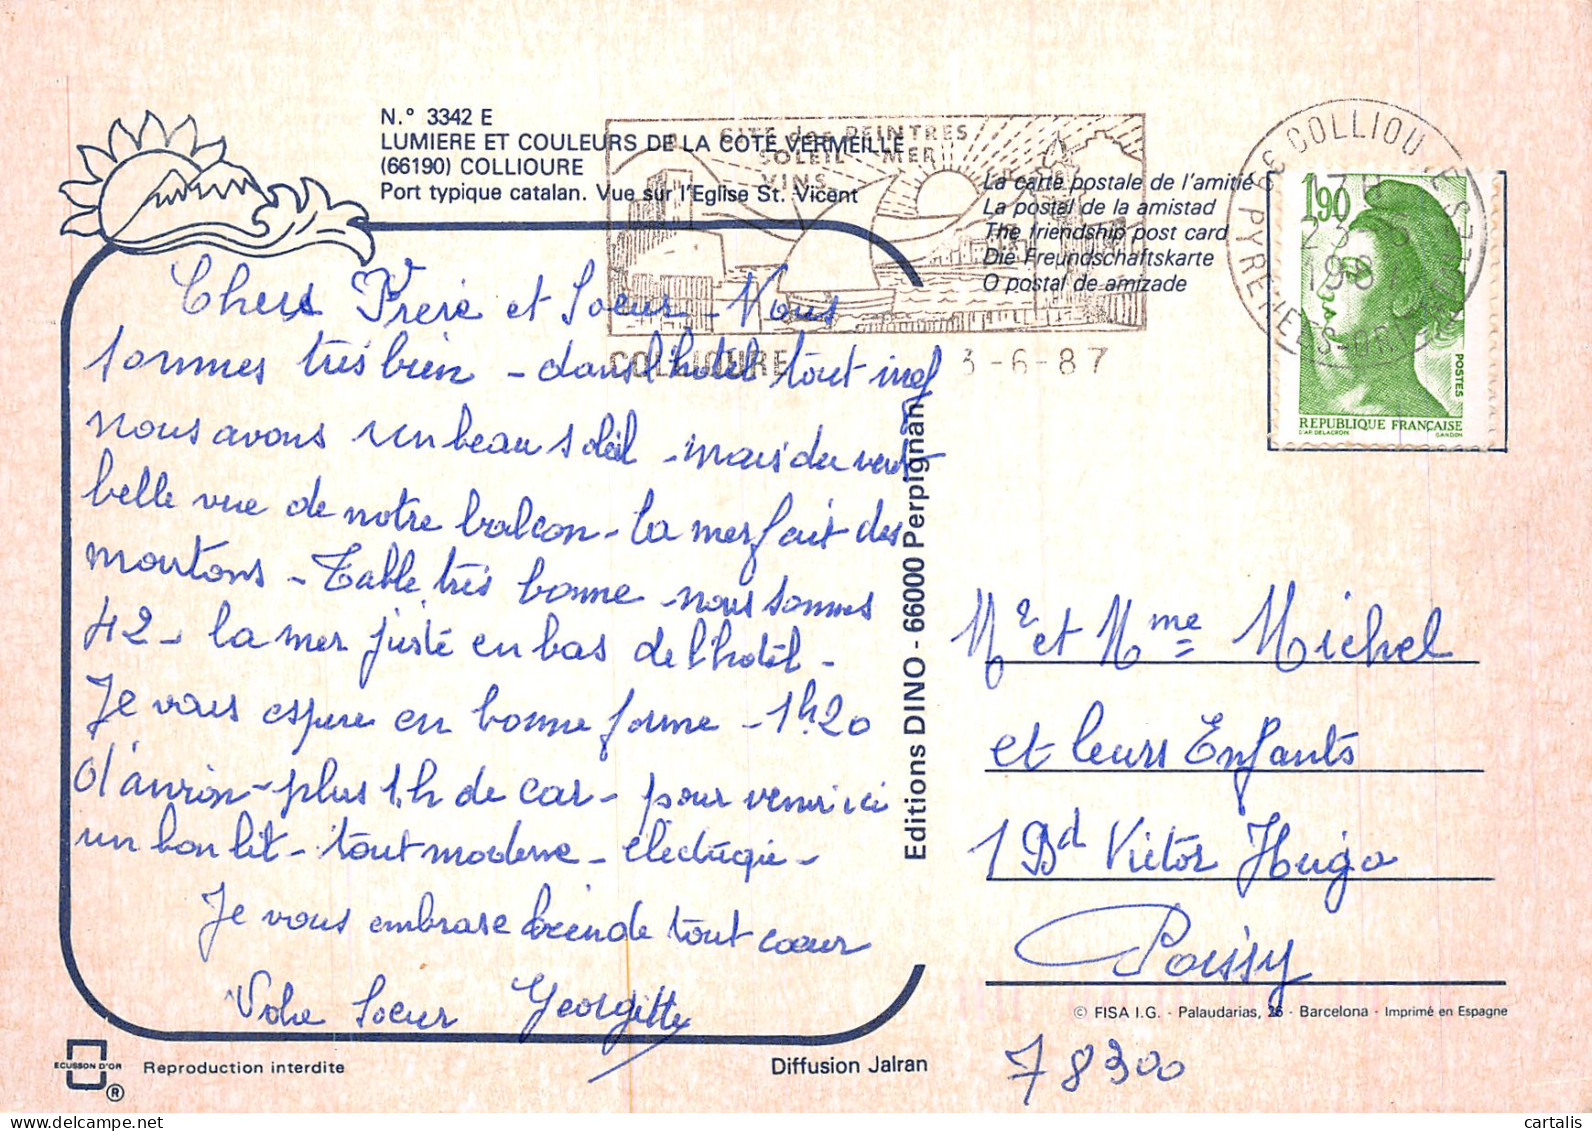 N.° 3342 E
LUMIERE ET COULEURS DE LA COTE VERMEILLE
(66190) COLLIOURE
Port typique catalan. Vue sur l'Eglise St. Vicent
CITE des PEINTRES
SOLEIL MER
VINS
COLLIOURE 3-6-87
La carte postale de l'amitié
La postal de la amistad
The friendship post card
Die Freundschaftskarte
O postal de amizade
66 COLLIOURE
PYRENEES-ORIENTALES
1987
1,90
POSTES
REPUBLIQUE FRANÇAISE
D'AP. DELACROIX GANDON
Chers Frere et Soeur - Nous
sommes très bien - dans l'hotel tout neuf
nous avons un beau soleil - mais du vent
belle vue de notre balcon - la mer fait des
moutons - Table très bonne - nous sommes
42 - la mer juste en bas de l'hotel -
Je vous espere en bonne forme - 1h20
d'avion - plus 1h de car - pour venir ici
un bon lit - tout moderne -
Je vous embrasse bien de tout coeur
Votre Soeur Georgette
Mr et Mme Michel
et leurs Enfants
1 Bd Victor Hugo
Poissy
78300
Editions DINO - 66000 Perpignan
© FISA I.G. - Palaudarias, 26 - Barcelona - Imprimé en Espagne
ECUSSON D'OR
®
Reproduction interdite
Diffusion Jalran
cartalis